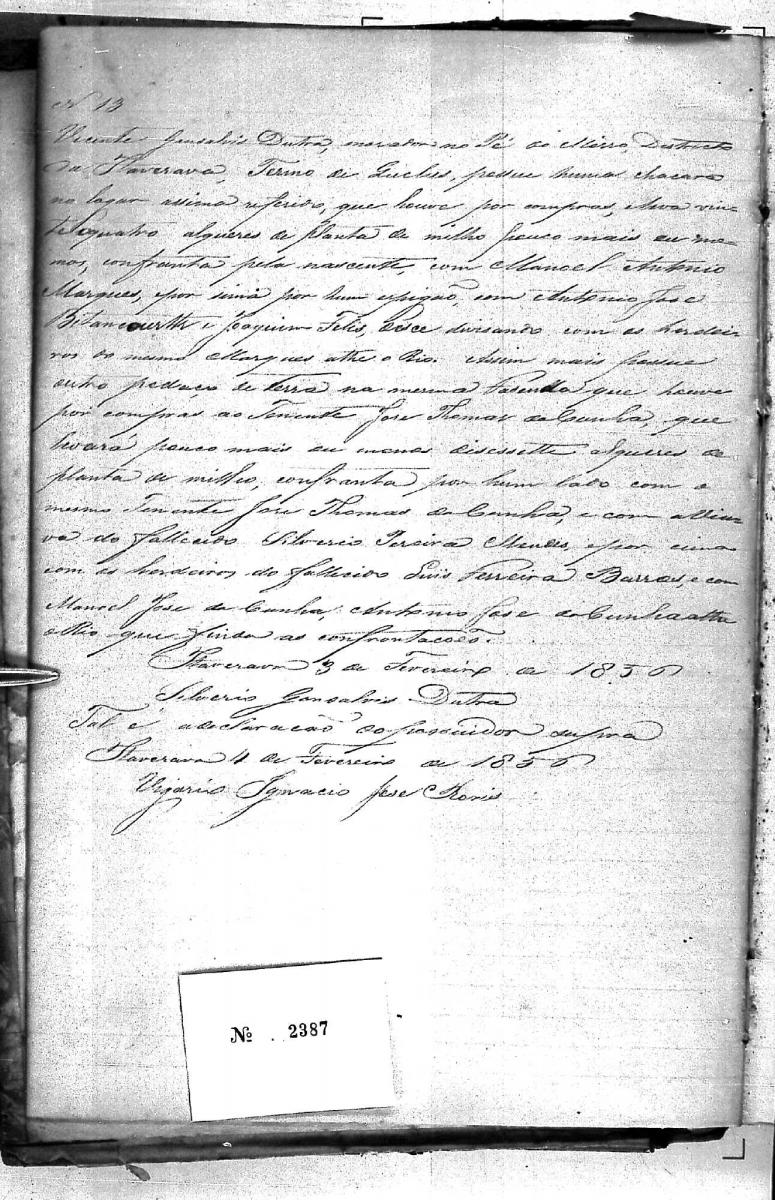 N 13
Vicente Gonsalvis Dutra, morador no Pé do Morro, Destricto
da Itaverava, Termo de Quelus, possue huma chacara
no lugar assima referido, que houve por compras, leva vin-
te e quatro alqueres de planta de milho pouco mais ou me-
nos, confronta pela nascente com Manoel Antonio
Marques, e por sima por hum espigão, com Antonio Jose
Bitancourtt e Joaquim Felis, desce divisando com os herdei-
ros do mesmo Marques athe o Rio. Assim mais possue
outro pedaço de terra na mesma Fasenda que houve
por compras ao Tenente Jose Thomas da Cunha, que
levará pouco mais ou menos desessette alqueres de
planta de milho, confronta por hum lado com o
mesmo Tenente Jose Thomas da Cunha, e com a Viu-
va do fallecido Silverio Pereira Mendes, e por cima
com os herdeiros do fallecido Luis Ferreira Barros, e com
Manoel Jose da Cunha, Antonio Jose da Cunha athe
o Rio que finda as confrontacoẽs.
Itaverava 3 de Fevereiro de 1856
Silverio Gonsalvis Dutra
Tal é a declaração do possuidor supra
Itaverava 4 de Fevereiro de 1856
Vigario Ignacio Jose
№ 2387